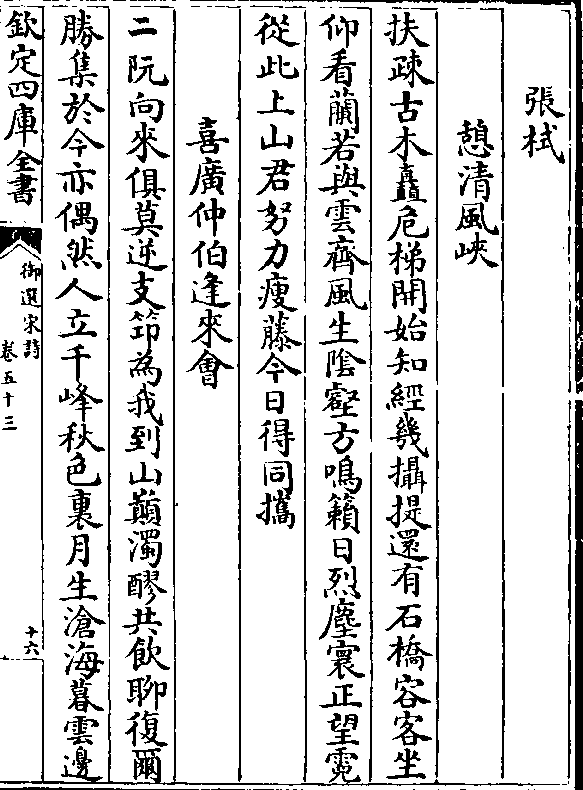 張栻
憩清風峽
扶疎古木矗危梯開始知經幾攝提還有石橋容客坐
仰看蘭若與雲齊風生陰壑方鳴籟日烈塵寰正望霓
從此上山君努力瘦藤今日得同攜
喜廣仲伯逢來會
二阮向來俱莫逆支筇為我到山巔濁醪共飲聊復爾
勝集於今亦偶然人立千峰秋色裏月生滄海暮雲邊
欽定四庫全書
御選宋詩
卷五十三
十六